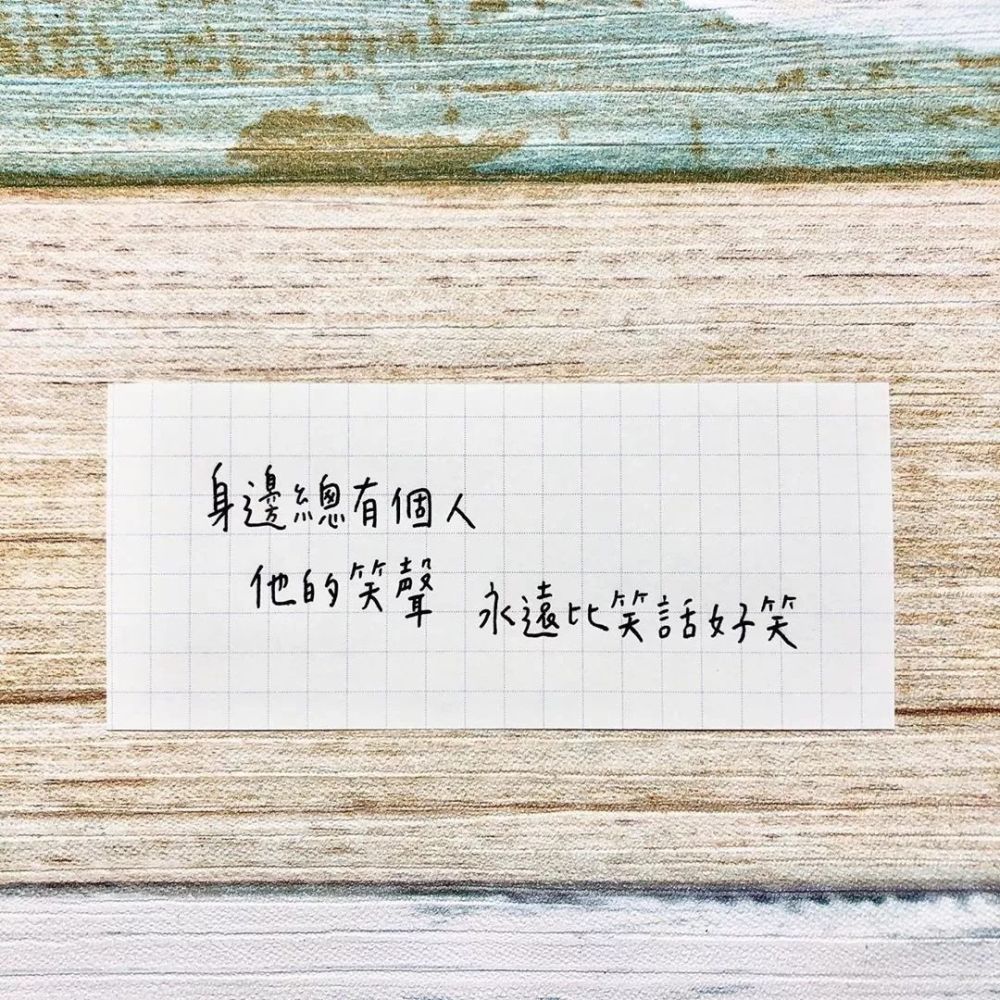 身邊總有個人
他的笑聲 永遠比笑話好笑